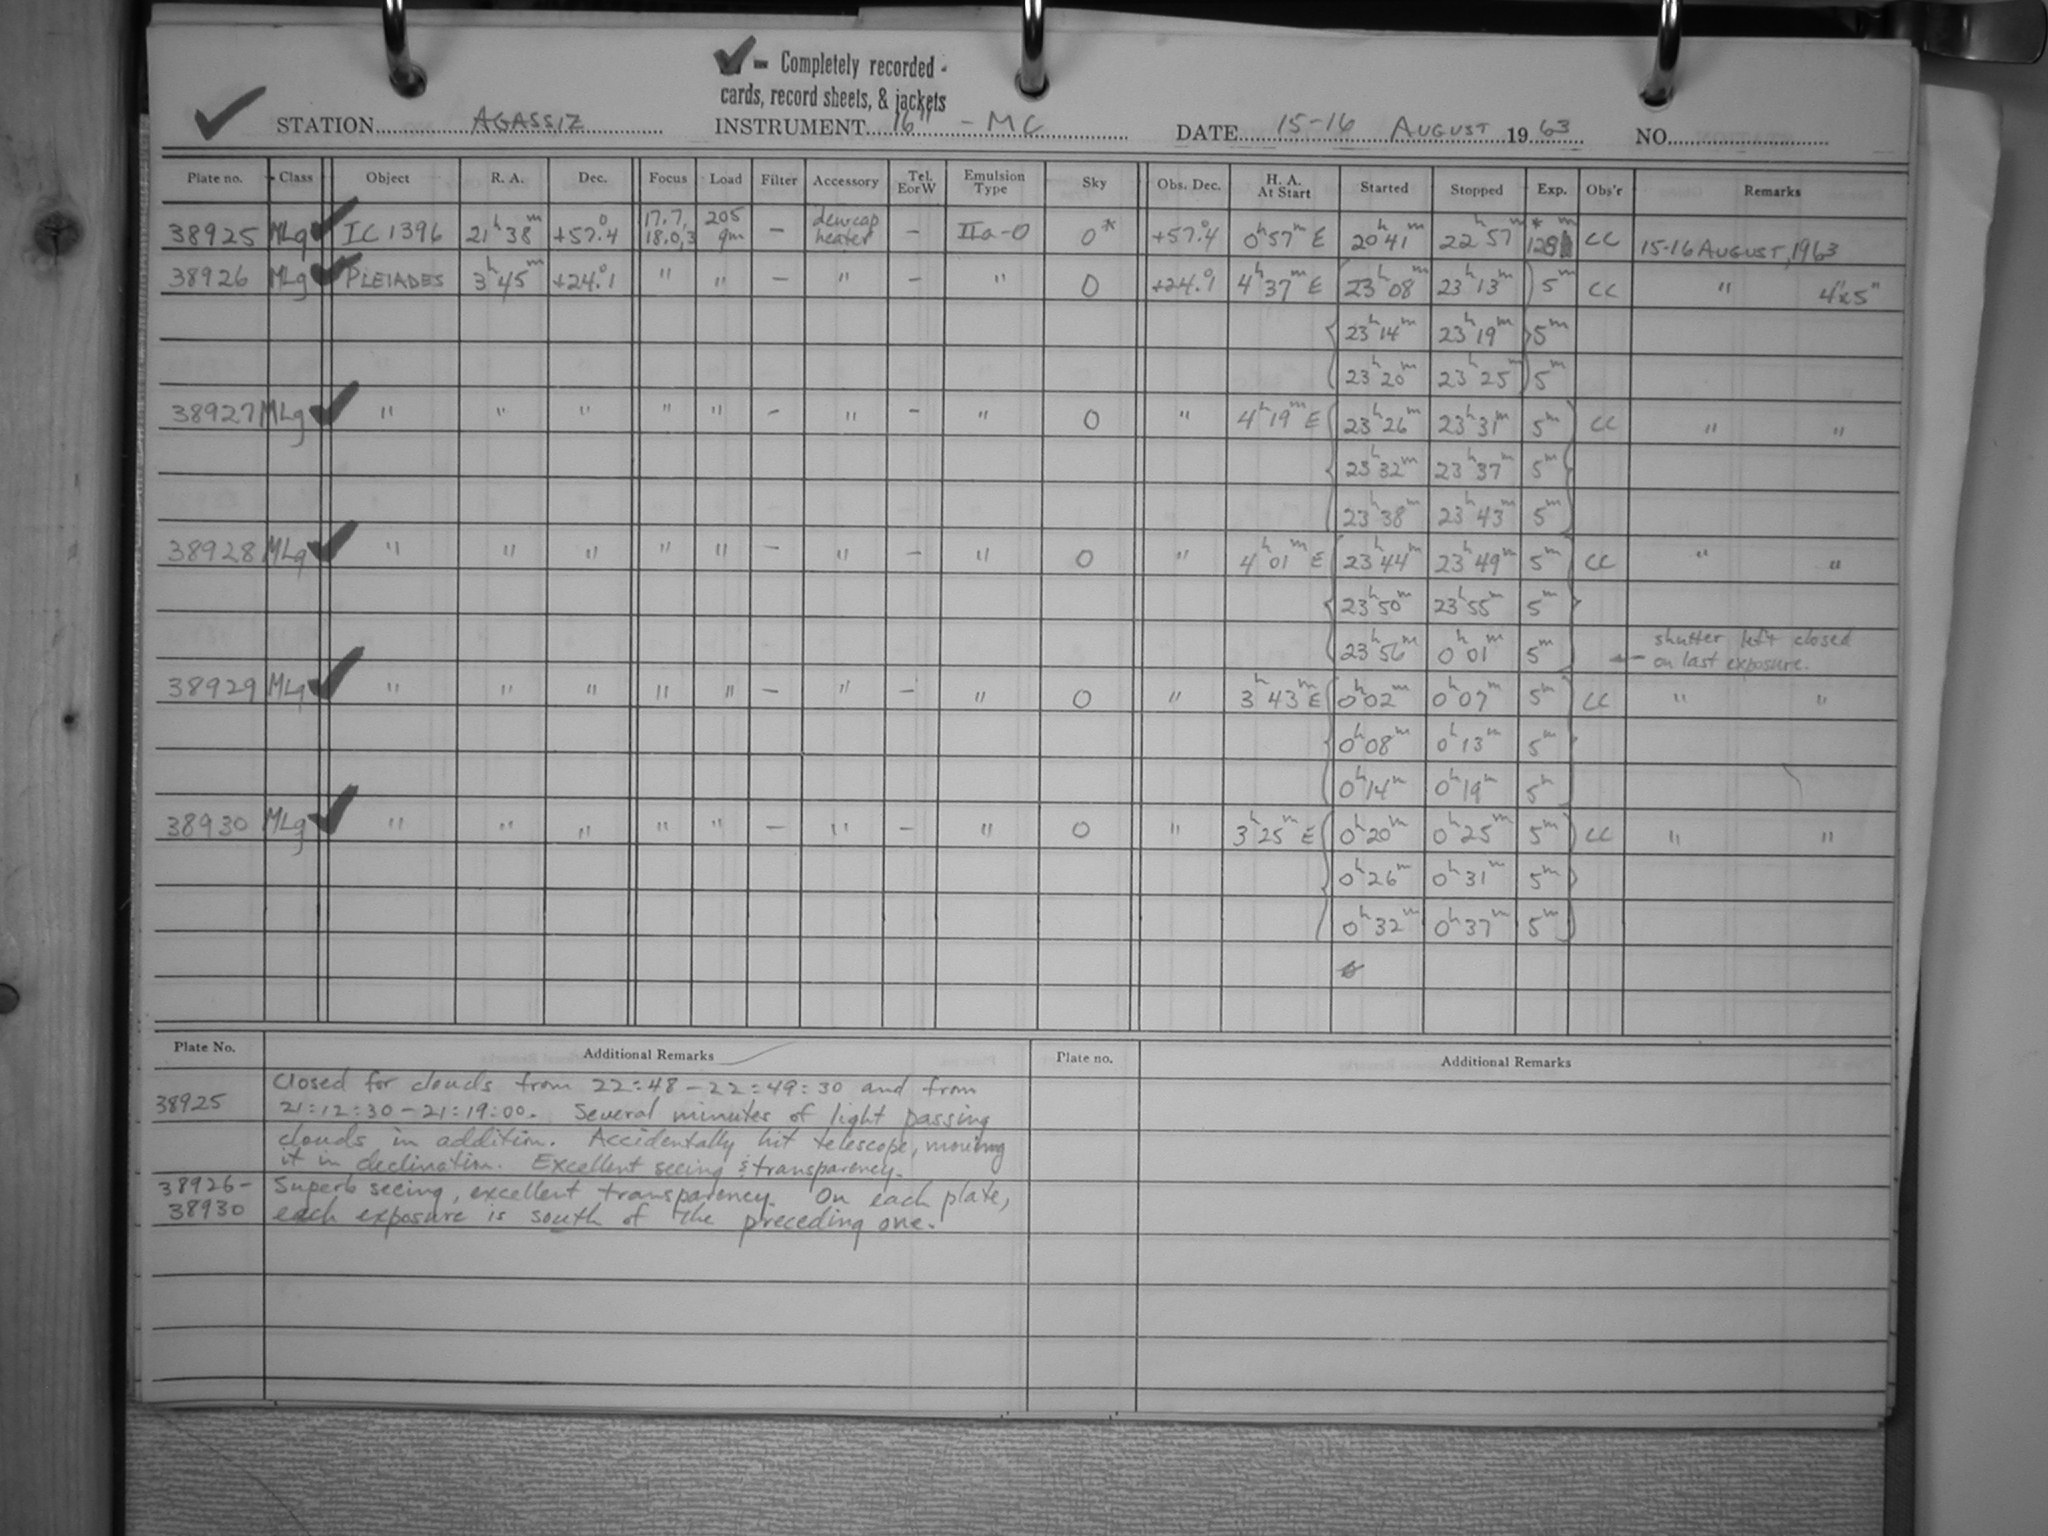 ✓ - Completely recorded -
cards, record sheets, & jackets
STATION AGASSIZ INSTRUMENT 16" - MC DATE 15-16 AUGUST 1963 NO.
Plate no. Class Object R. A. Dec. Focus Load Filter Accessory Tel. E or W Emulsion Type Sky Obs. Dec. H. A. At Start Started Stopped Exp. Obs'r Remarks
38925 MLg ✓ IC 1396 21h 38m +57°.4 17.7, 18.0,3 205 gm - dewcap heater - IIa-O 0* +57°.4 0h 57m E 20h 41m 22h 57m *128m CC 15-16 AUGUST, 1963
38926 MLg ✓ PLEIADES 3h 45m +24°.1 " " - " - " 0 +24°.1 4h 37m E 23h 08m 23h 13m 5m CC " 4"x5"
23h 14m 23h 19m 5m
23h 20m 23h 25m 5m
38927 MLg ✓ " " " " " - " - " 0 " 4h 19m E 23h 26m 23h 31m 5m CC " "
23h 32m 23h 37m 5m
23h 38m 23h 43m 5m
38928 MLg ✓ " " " " " - " - " 0 " 4h 01m E 23h 44m 23h 49m 5m CC " "
23h 50m 23h 55m 5m
23h 56m 0h 01m 5m ← shutter left closed on last exposure.
38929 MLg ✓ " " " " " - " - " 0 " 3h 43m E 0h 02m 0h 07m 5m CC " "
0h 08m 0h 13m 5m
0h 14m 0h 19m 5m
38930 MLg ✓ " " " " " - " - " 0 " 3h 25m E 0h 20m 0h 25m 5m CC " "
0h 26m 0h 31m 5m
0h 32m 0h 37m 5m
Plate No. Additional Remarks Plate no. Additional Remarks
38925 Closed for clouds from 22:48-22:49:30 and from
21:12:30-21:19:00. Several minutes of light passing
clouds in addition. Accidentally hit telescope, moving
it in declination. Excellent seeing & transparency.
38926- Superb seeing, excellent transparency. On each plate,
38930 each exposure is south of the preceding one.